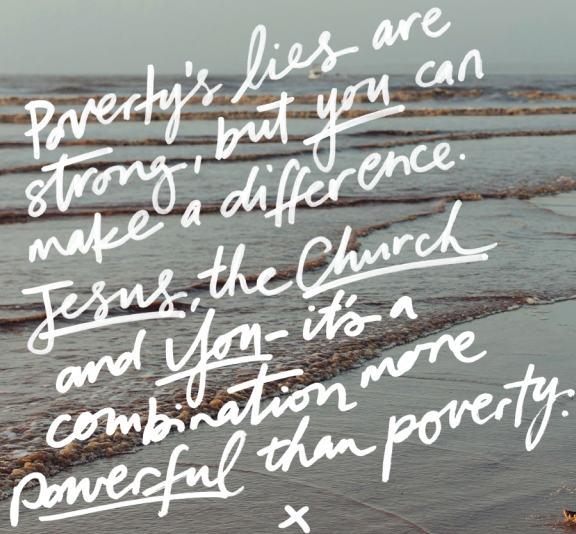 Poverty's lies are
strong, but you can
make a difference.
Jesus, the Church
and You - it's a
combination more
powerful than poverty.
x